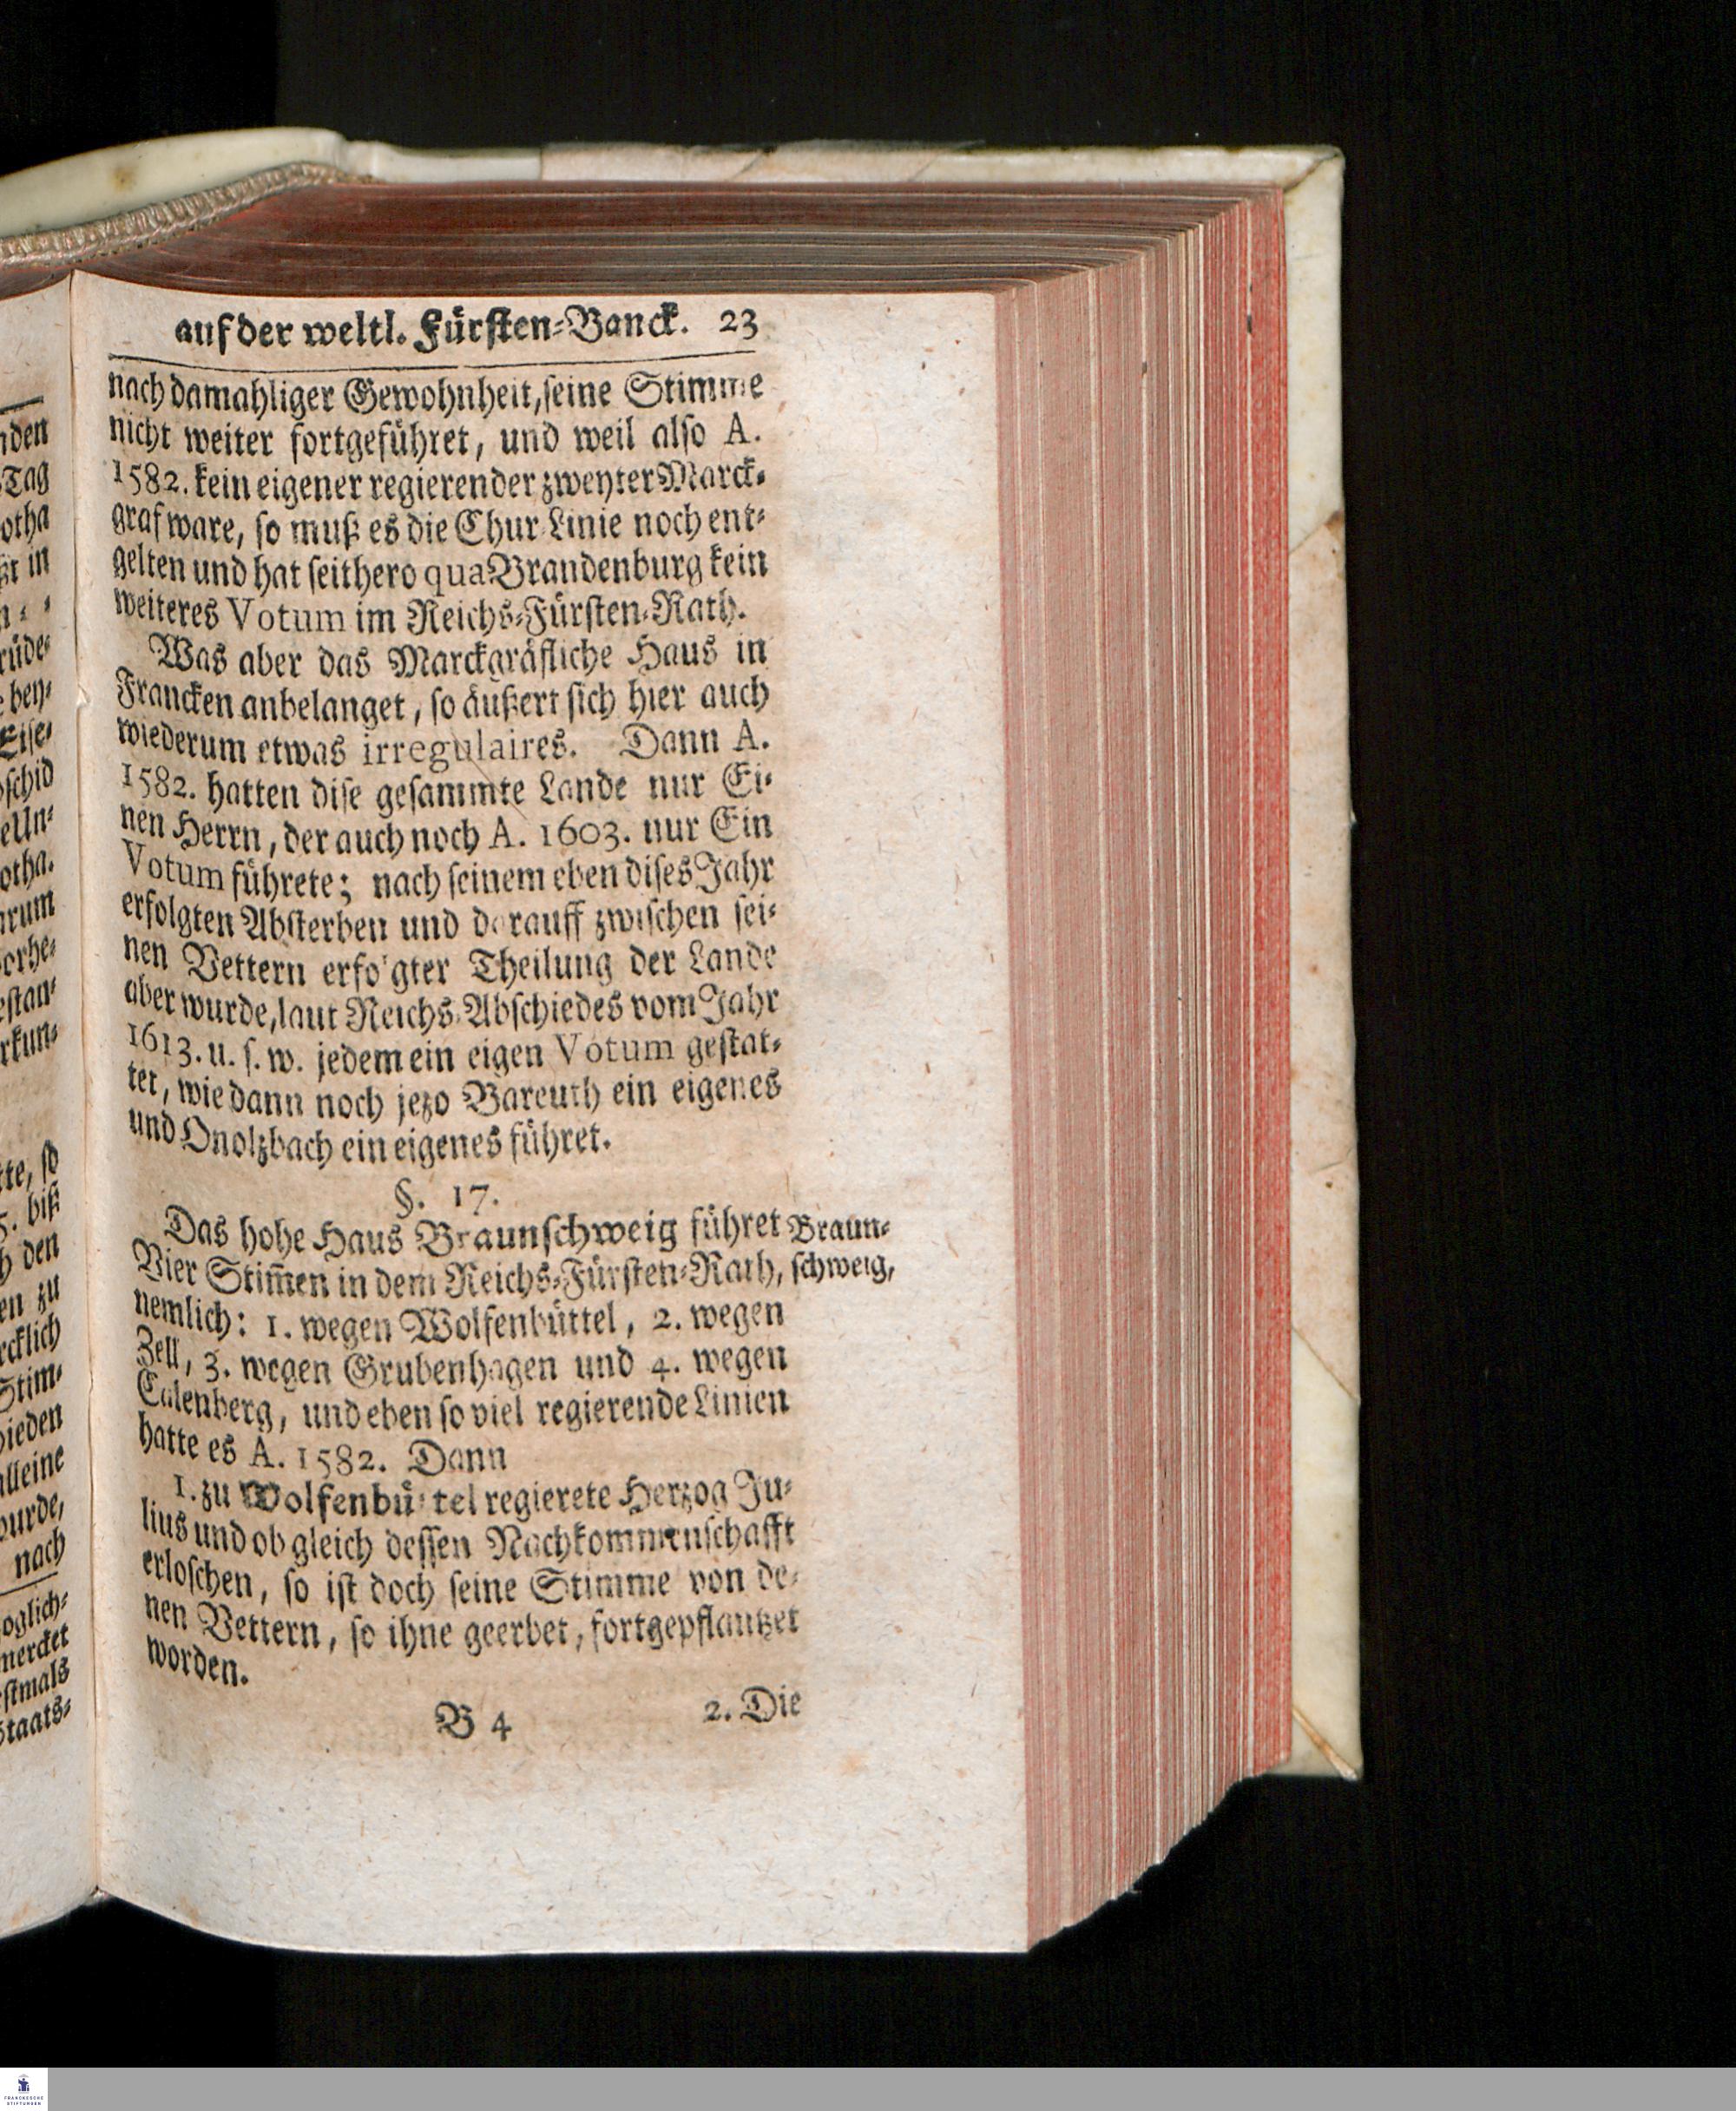 auf der weltl. Fürsten-Banck. 23
nach damahliger Gewohnheit, seine Stimme
nicht weiter fortgeführet, und weil also A.
1582. kein eigener regierender zweyter Marck-
graf ware, so muß es die Chur-Linie noch ent-
gelten und hat seithero qua Brandenburg kein
weiteres Votum im Reichs-Fürsten-Rath.
Was aber das Marckgräfliche Haus in
Francken anbelanget, so äußert sich hier auch
wiederum etwas irregulaires. Dann A.
1582. hatten dise gesammte Lande nur Ei-
nen Herrn, der auch noch A. 1603. nur Ein
Votum führete; nach seinem eben dises Jahr
erfolgten Absterben und darauff zwischen sei-
nen Vettern erfolgter Theilung der Lande
aber wurde, laut Reichs-Abschiedes vom Jahr
1613. u. s. w. jedem ein eigen Votum gestat-
tet, wie dann noch jezo Bareuth ein eigenes
und Onolzbach ein eigenes führet.
§. 17.
Das hohe Haus Braunschweig führet Braun-
Vier Stim̄en in dem Reichs-Fürsten-Rath, schweig,
nemlich: 1. wegen Wolfenbüttel, 2. wegen
Zell, 3. wegen Grubenhagen und 4. wegen
Calenberg, und eben so viel regierende Linien
hatte es A. 1582. Dann
1. zu Wolfenbüttel regierete Herzog Ju-
lius und ob gleich dessen Nachkommenschafft
erloschen, so ist doch seine Stimme von de-
nen Vettern, so ihne geerbet, fortgepflantzet
worden.
B 4 2. Die
nden
Tag
otha
in
rüde-
bey-
Eise-
bschid
elln-
otha.
arum
vorhe-
estan-
rkun-
tte, so
5. biß
den
en zu
rcklich
Stim-
hieden
alleine
wurde,
nach
oglich-
mercket
stmals
Staats-
FRANCKESCHE
STIFTUNGEN